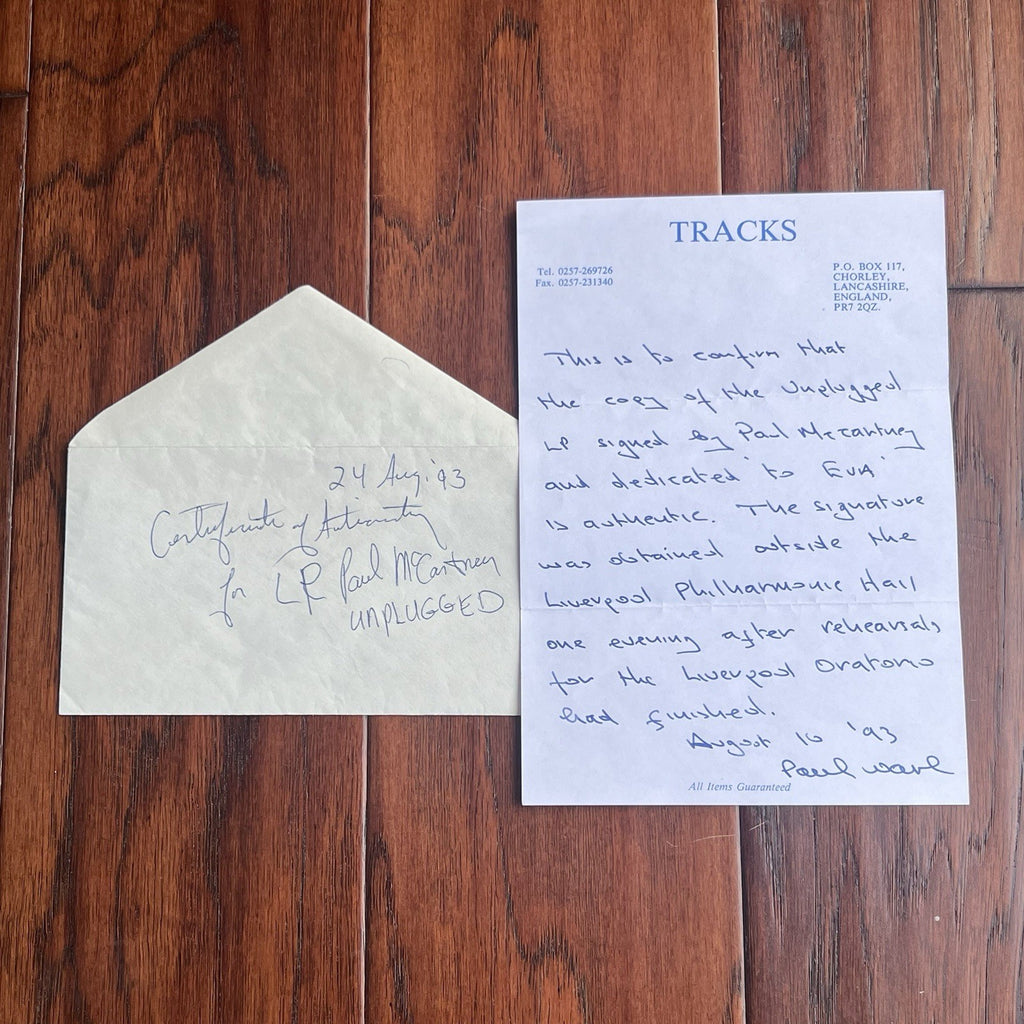 24 Aug. '93
Certificate of Autienity
for LP Paul McCartney
UNPLUGGED
TRACKS
Tel. 0257-269726
Fax. 0257-231340
P.O. BOX 117,
CHORLEY,
LANCASHIRE,
ENGLAND,
PR7 2QZ.
This is to confirm that
the copy of the Unplugged
LP signed by Paul McCartney
and dedicated 'to EVA'
is authentic. The signature
was obtained outside the
Liverpool Philharmonic Hall
one evening after rehearsals
for the Liverpool Oratorio
had finished.
August 10 '93
Paul Wane
All Items Guaranteed